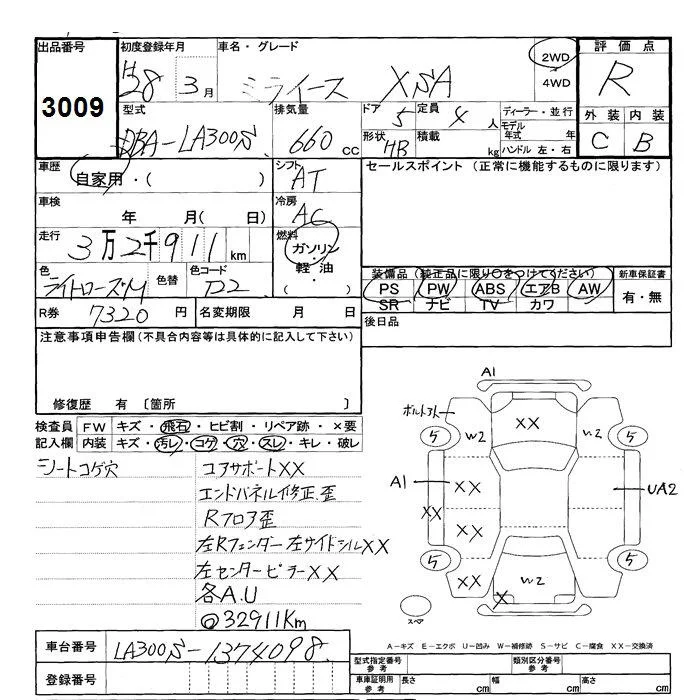 出品番号 初度登録年月 車名・グレード 評価点
3009 H28 3月 ミライース XSA 2WD 4WD R
型式 排気量 ドア 5 定員 4人 ディーラー・並行 外装 内装
DBA-LA300S 660cc 形状 HB 積載 kg モデル年式 年 ハンドル 左・右 C B
車歴 シフト セールスポイント (正常に機能するものに限ります)
自家用・( ) AT
車検 冷房
年 月( 日) AC
走行 燃料
3万2千911km ガソリン・軽油・( )
色 色替 色コード 装備品(純正品に限り○をつけてください) 新車保証書
ライトローズM D2 PS PW ABS エアB AW 有・無
SR ナビ TV カワ
R券 7320円 名変期限 月 日 後日品
注意事項申告欄(不具合内容等は具体的に記入して下さい)
修復歴 有 〔箇所 〕
検査員 FW キズ・飛石・ヒビ割・リペア跡・×要
記入欄 内装 キズ・汚レ・コゲ・穴・スレ・キレ・破レ
シートコゲ穴 コアサポートXX
エンドパネル修正、歪
Rフロア歪
左Rフェンダー左サイドシルXX
左センターピラーXX
各A.U
@32911Km
A1
ボルト外
XX
5 W2 5
A1 XX UA2
XX
XX
5 XX W2 5
X
スペア
A-キズ E-エクボ U-凹み W-補修跡 S-サビ C-腐食 XX-交換済
車台番号 LA300S-1374098
登録番号
型式指定番号 参考 類別区分番号 参考
車庫証明用 参考 長さ cm 幅 cm 高さ cm